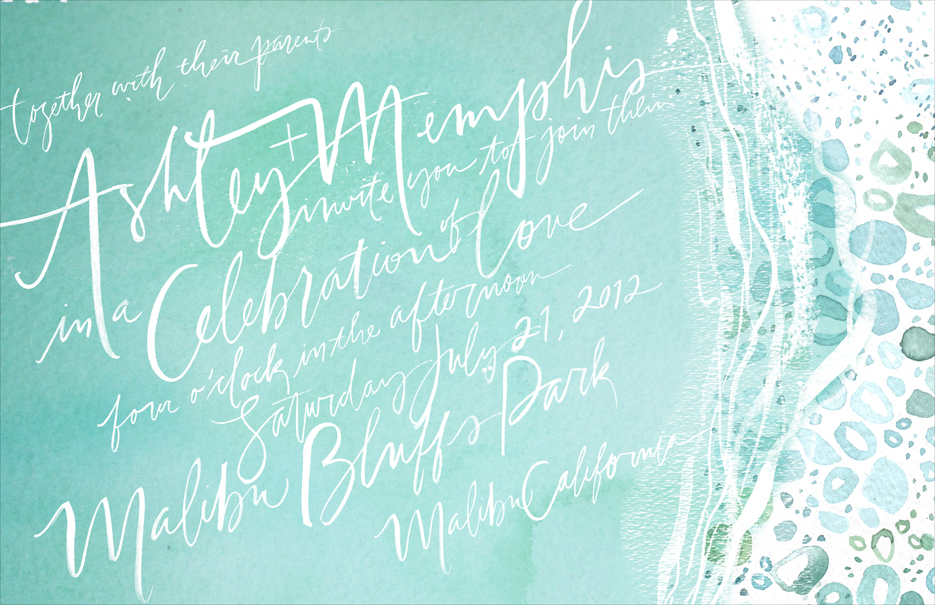 together with their parents
Ashley + Memphis
invite you to join them
in a Celebration of Love
four o'clock in the afternoon
Saturday July 21, 2012
Malibu Bluffs Park
Malibu California